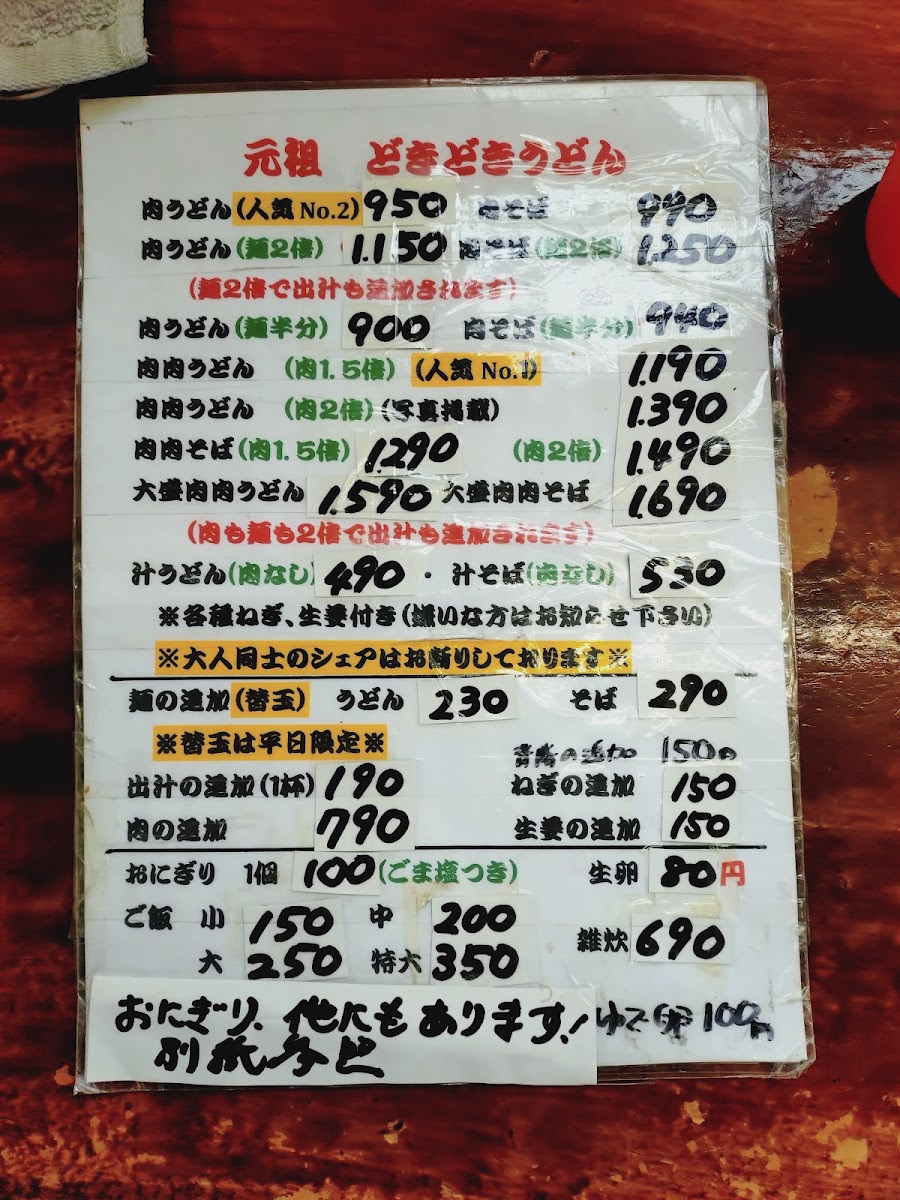 元祖 どきどきうどん
肉うどん(人気No.2) 950 肉そば 990
肉うどん(麺2倍) 1.150 肉そば(麺2倍) 1.250
(麺2倍で出汁も追加されます)
肉うどん(麺半分) 900 肉そば(麺半分) 940
肉肉うどん (肉1.5倍) (人気No.1) 1.190
肉肉うどん (肉2倍)(写真掲載) 1.390
肉肉そば(肉1.5倍) 1.290 (肉2倍) 1.490
大盛肉肉うどん 1.590 大盛肉肉そば 1.690
(肉も麺も2倍で出汁も追加されます)
汁うどん(肉なし) 490 ・ 汁そば(肉なし) 530
※各種ねぎ、生姜付き(嫌いな方はお知らせ下さい)
※大人同士のシェアはお断りしております※
麺の追加(替玉) うどん 230 そば 290
※替玉は平日限定※
背脂の追加 150円
出汁の追加(1杯) 190 ねぎの追加 150
肉の追加 790 生姜の追加 150
おにぎり 1個 100 (ごま塩つき) 生卵 80円
ご飯 小 150 中 200
大 250 特大 350 雑炊 690
おにぎり、他にもあります! ゆで卵 100円
別紙